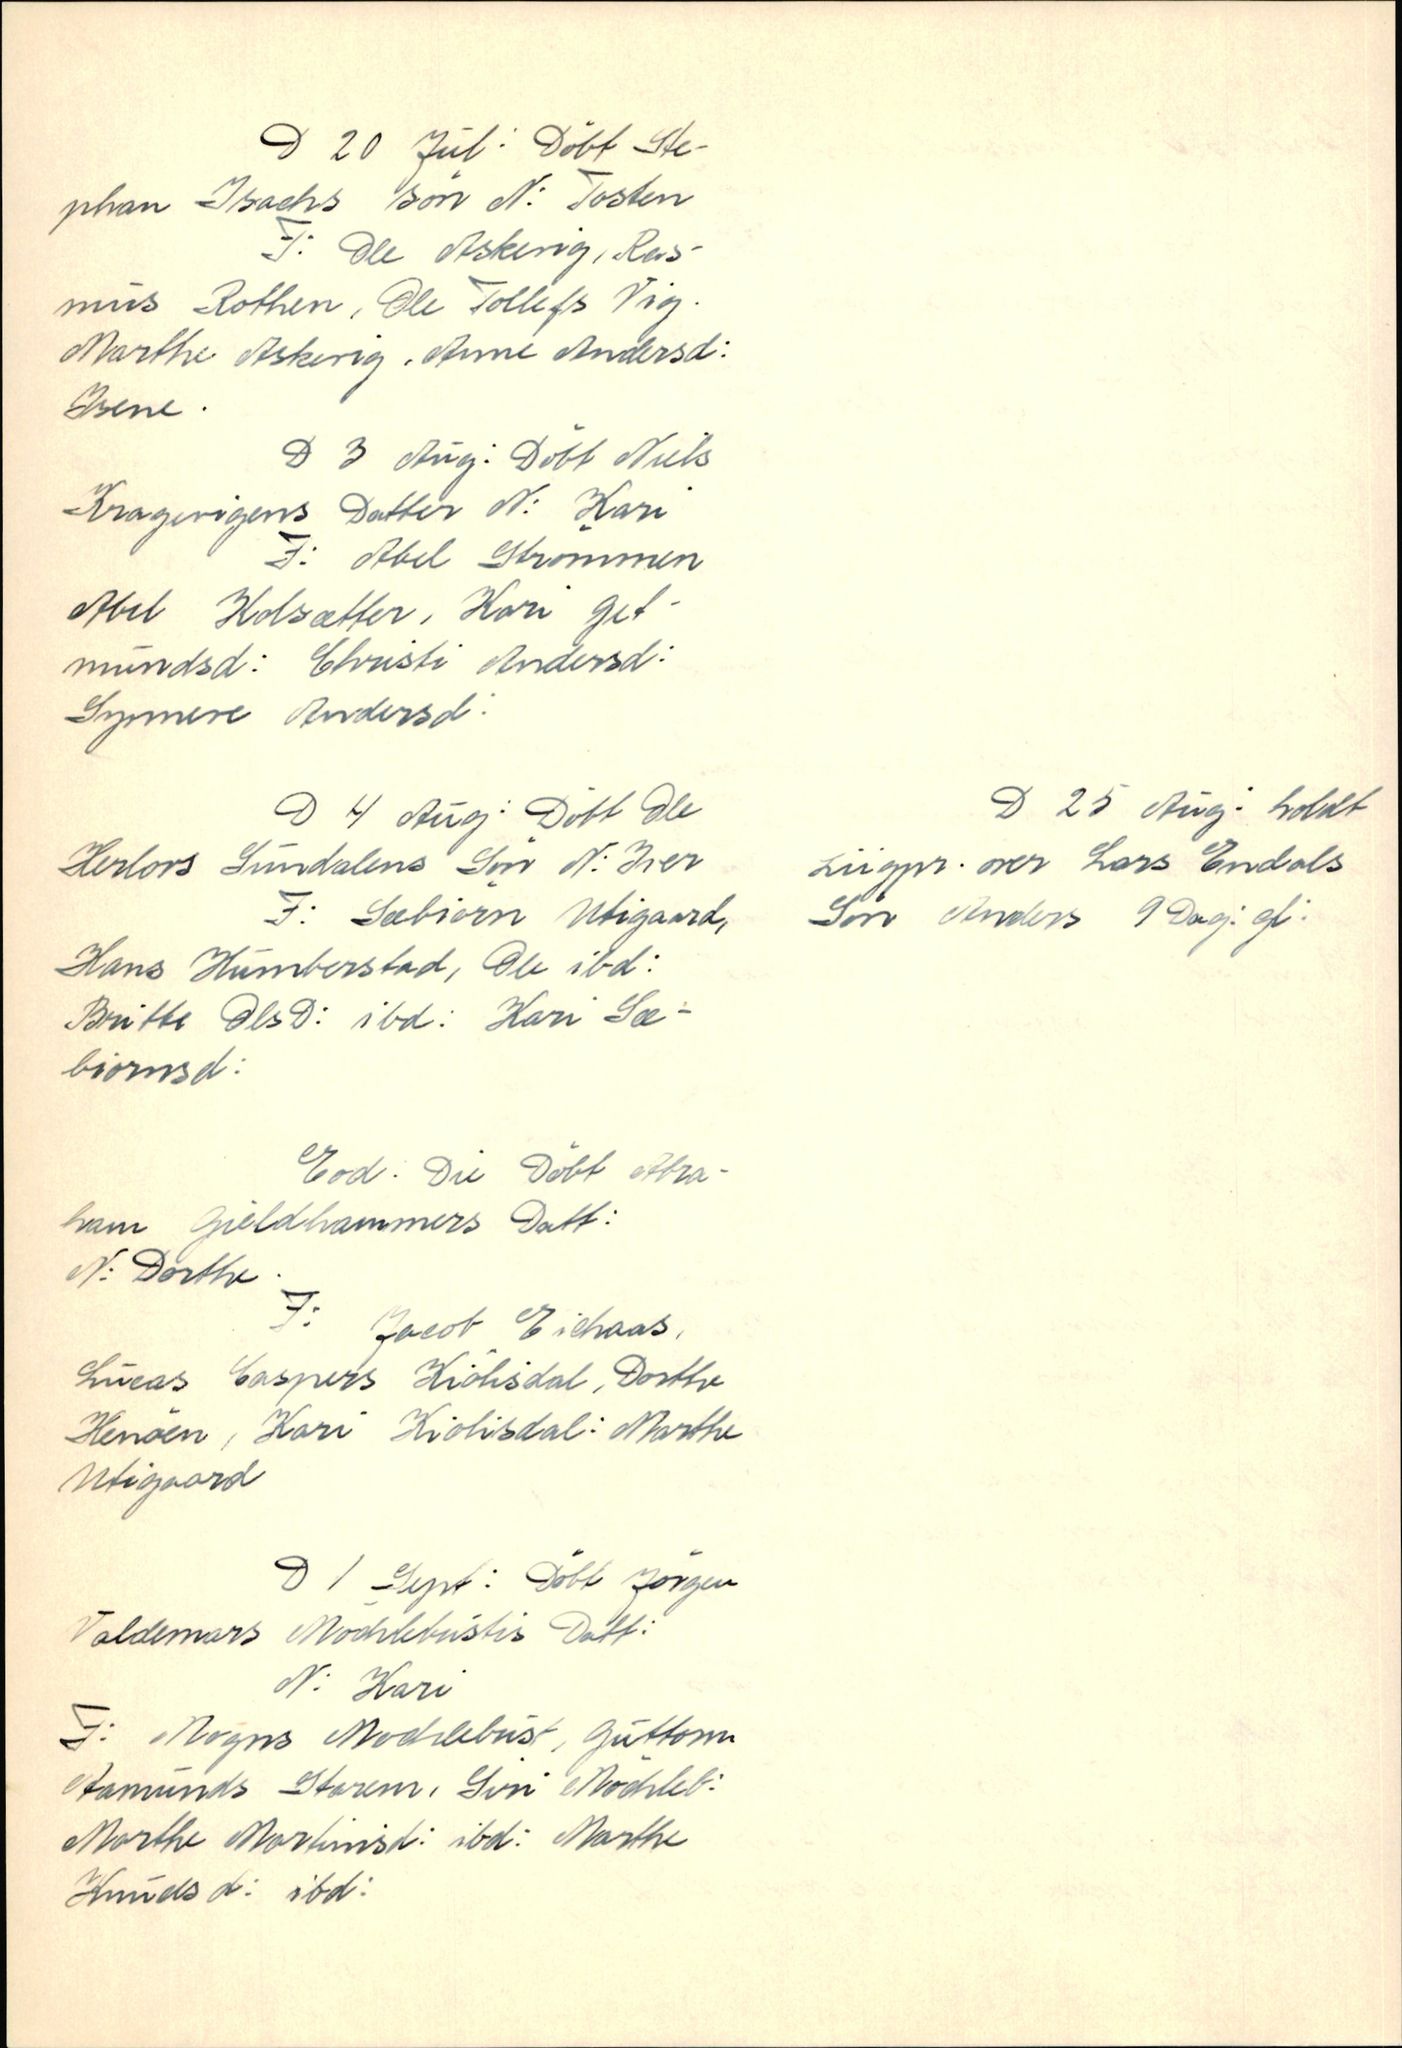 D 20 Jul: Döbt Ste-
phan Isachs sön N: Tosten
F: Ole Askevig, Ras-
mus Rothen, Ole Tollefs Vig.
Marthe Askevig. Anne Andersd:
Isene.
D 3 Aug: Döbt Niels
Kragevigens Datter N: Kari
F: Abel Strömmen
Abel Kolsætter, Kari Get-
mundsd: Christi Andersd:
Synneve Andersd:
D 4 Aug: Döbt Ole
Herlovs Sundalens Sön N: Iver
F: Sæbiörn Utigaard,
Hans Humberstad, Ole ibd:
Britte OlsD: ibd: Kari Sæ-
biornsd:
Eod: Die Döbt Abra-
ham Gieldhammers Datt:
N: Dorthe.
F: Jacob Eidraas,
Lucas Caspers Kiölisdal, Dorthe
Henöen, Kari Kiolisdal: Marthe
Utigaard
D 1 Sept: Döbt Jörgen
Valdemars Möchlebustis Datt:
N: Kari
F: Mogns Mochlebust, Guttorm
Aamunds Starem, Siri Möchleb:
Marthe Martinisd: ibd: Marthe
Knudsd: ibd:
D 25 Aug: holdt
Liigpr. over Lars Endals
Sön Anders 9 Dag: gl: